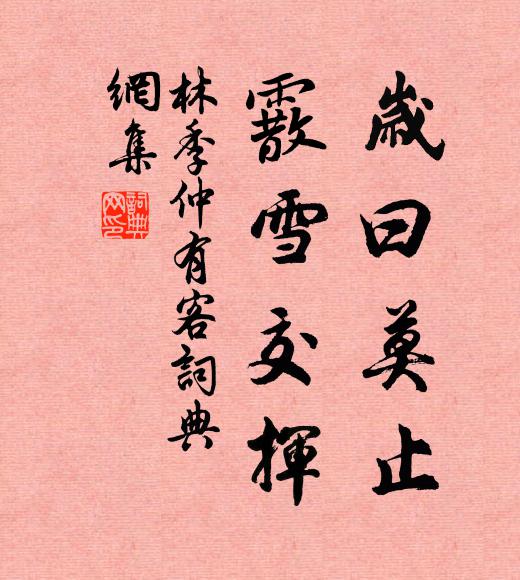 歲曰莫止
霰雪交揮
林季仲有客詞典
網集
詞典
网印